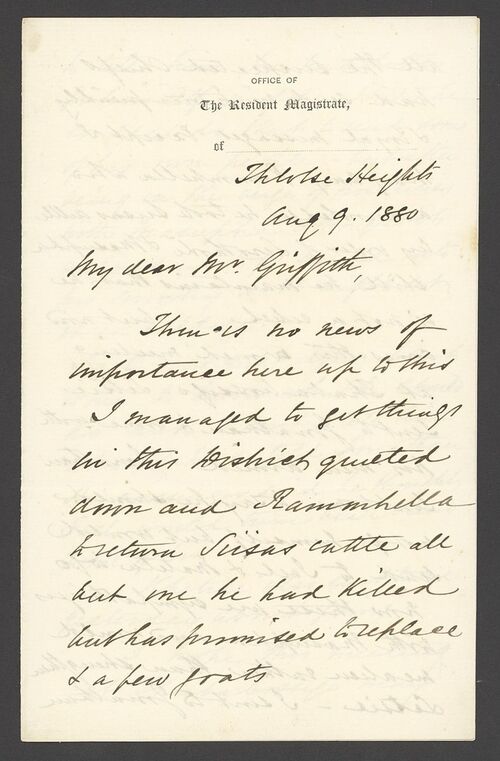 OFFICE OF
The Resident Magistrate,
of
Thlotse Heights
Aug 9. 1880
My dear Mr. Griffith,
There is no news of
importance here up to this
I managed to get things
in this District quieted
down and Ramanella
to return Siisas cattle all
but one he had killed
but has promised to replace
& a few goats